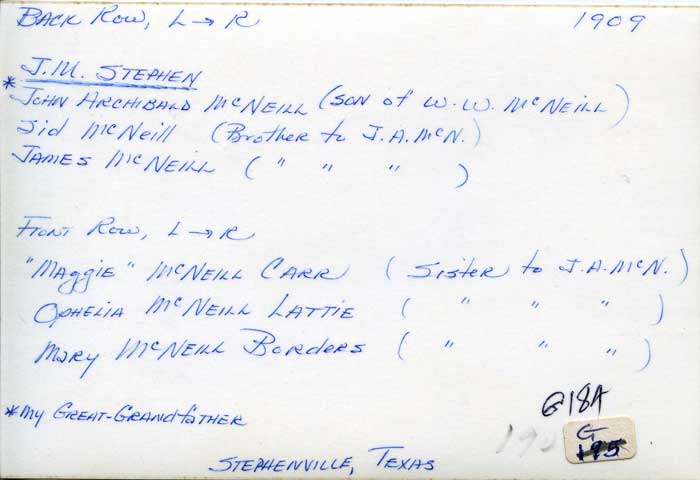 BACK ROW, L → R 1909
J.M. STEPHEN
* JOHN ARCHIBALD MCNEILL (SON of W.W. MCNEILL)
Sid McNeill (Brother to J.A. McN.)
JAMES MCNEILL ( " " " )
FRONT ROW, L → R
"MAGGIE" MCNEILL CARR ( Sister to J.A. McN.)
OPHELIA MCNEILL LATTIE ( " " " )
MARY MCNEILL BORDERS ( " " " )
* My GREAT-GRANDfATHER
G18A
G
195
STEPHENVILLE, TEXAS